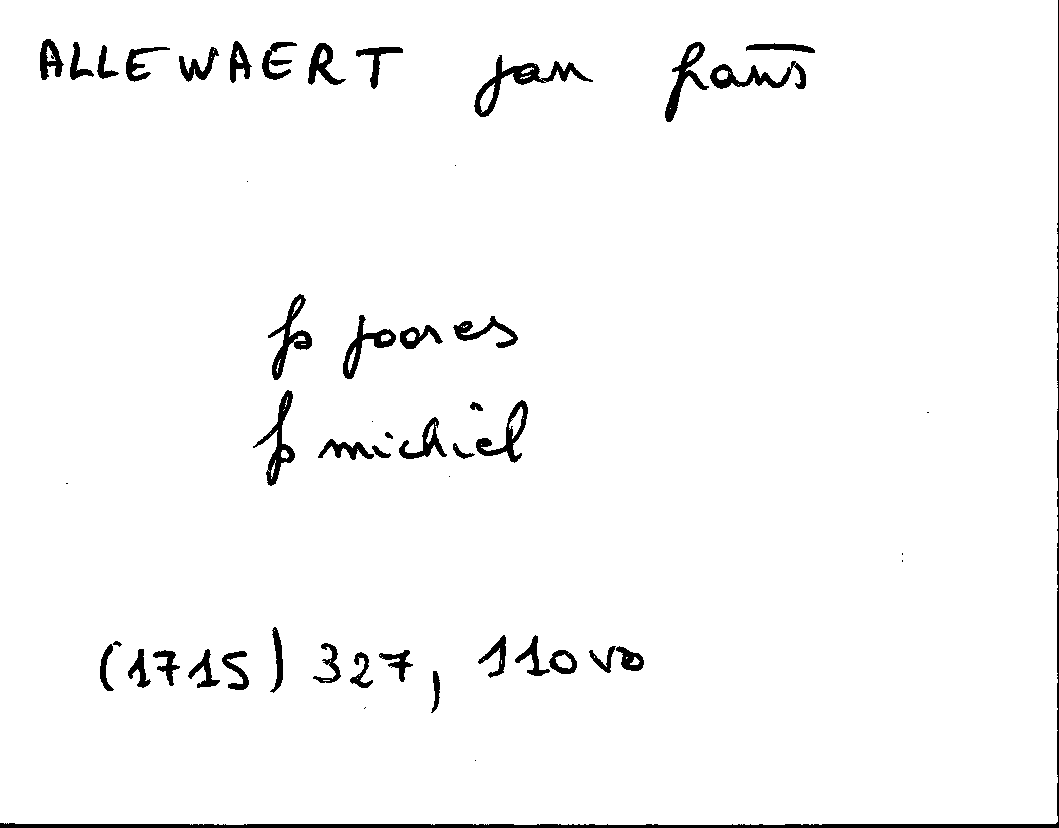 ALLEWAERT jan frans
fs joores
fs michiel
(1715) 327, 110vo